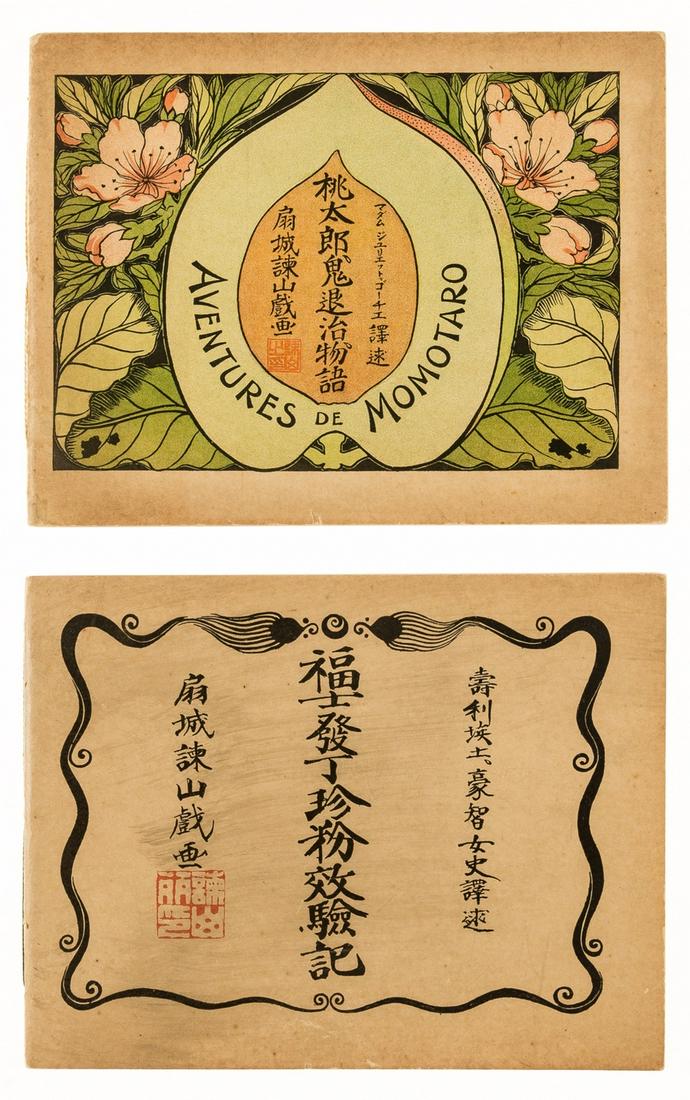 マダム ジユリエット、ゴーチエ 譯述
桃太郎鬼退治物語
扇城諫山戲画
AVENTURES DE MOMOTARO
壽利埃土、豪智女史譯述
福士發丁珍粉效驗記
扇城諫山戲画